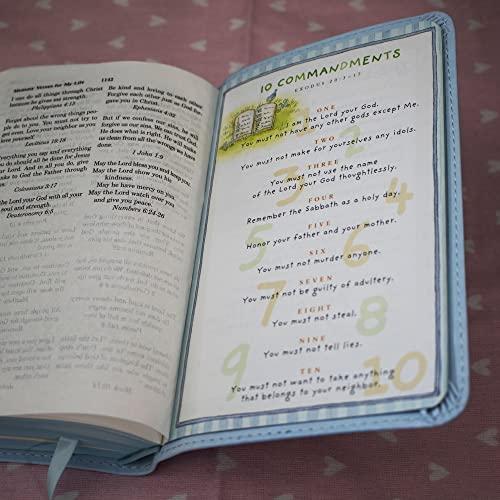 Memory Verses for My Life 1142
I can do all things through Christ
because he gives me strength.
Philippians 4:13
Forget about the wrong things
people do to you. You must not try
to get even. Love your neighbor as
you love yourself.
Leviticus 19:18
Everything you say and everything
you do should all be done for Jesus
And in all you do, give
to God the Father through
Colossians 3:17
the Lord your God with all your
soul and strength.
Deuteronomy 6:5
Be kind and loving to each other.
Forgive each other just as God for-
gave you in Christ.
Ephesians 4:32
But if we confess our sins, he will
forgive our sins. We can trust God.
He does what is right. He will make
us clean from all the wrongs we have
done.
1 John 1:9
May the Lord bless you and keep you.
May the Lord show you his
kindness.
May he have mercy on you.
May the Lord watch over you
and give you peace.
Numbers 6:24-26
10 COMMANDMENTS
EXODUS 20:1-17
ONE
I am the Lord your God.
You must not have any other gods except Me.
TWO
You must not make for yourselves any idols.
THREE
You must not use the name
of the Lord your God thoughtlessly.
FOUR
Remember the Sabbath as a holy day.
FIVE
Honor your father and your mother.
SIX
You must not murder anyone.
SEVEN
You must not be guilty of adultery.
EIGHT
You must not steal.
NINE
You must not tell lies.
TEN
You must not want to take anything
that belongs to your neighbor.
3
4
5
6
7
8
9
10